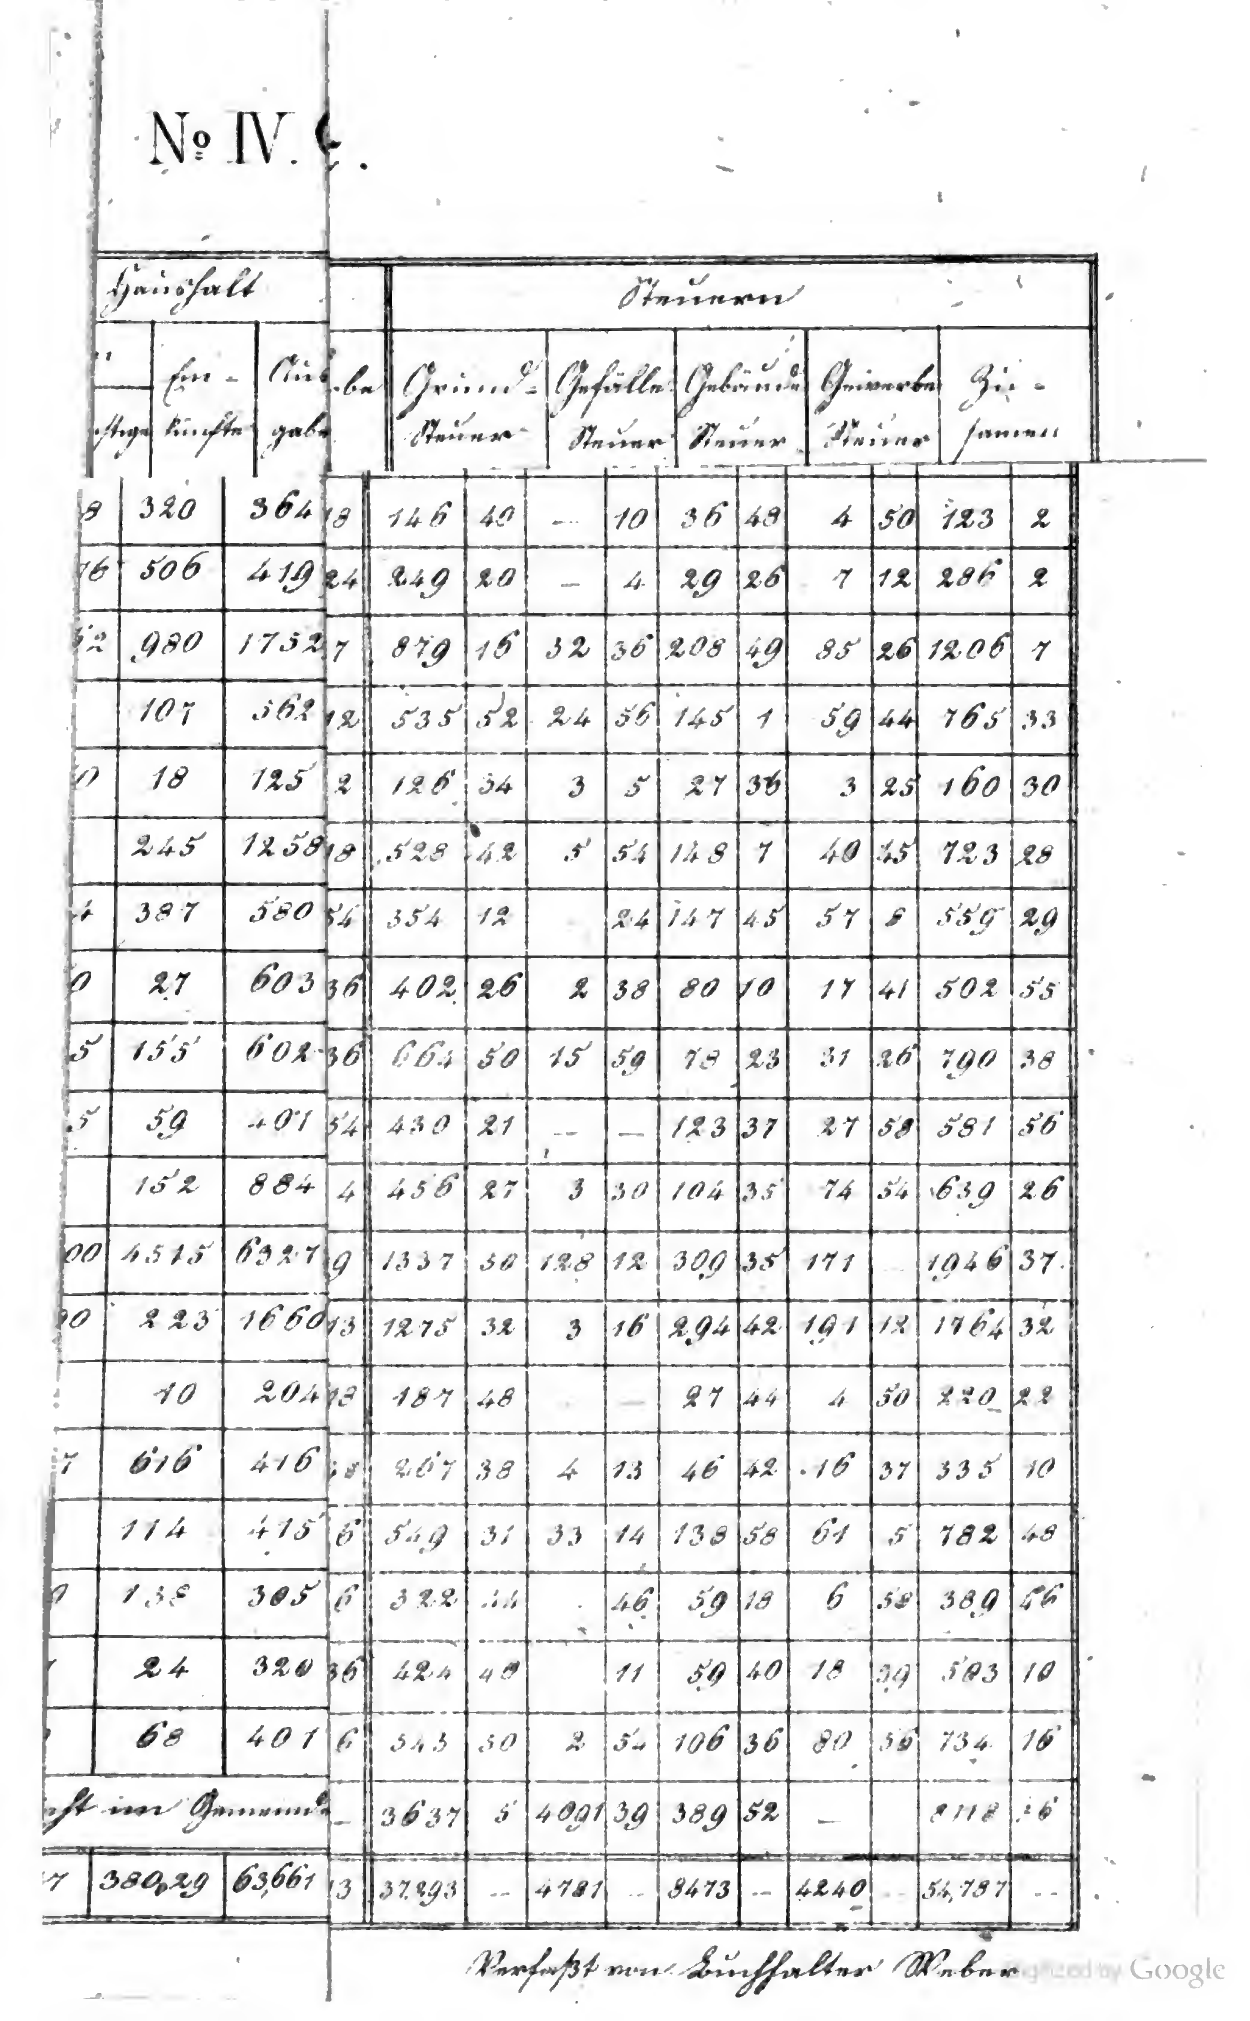 No IV.
Haushalt
Steuern
Ein- Aus be Grund- Gefälle Gebäude Gewerbe Zu-
stige künfte gabe Steuer Steuer Steuer Steuer samen
8 320 364 18 146 40 — 10 36 48 4 50 123 2
76 506 419 24 249 20 — 4 29 26 7 12 286 2
52 980 1752 7 879 16 32 36 208 49 85 26 1206 7
107 562 12 535 52 24 56 145 1 59 44 765 33
0 18 125 2 126 34 3 5 27 36 3 25 160 30
245 1258 18 528 42 5 54 148 7 40 45 723 28
4 387 580 54 354 12 24 147 45 57 8 559 29
0 27 603 36 402 26 2 38 80 10 17 41 502 55
5 155 602 36 664 50 15 59 78 23 31 26 790 38
5 59 401 54 430 21 — — 123 37 27 58 581 56
152 884 4 456 27 3 30 104 35 74 54 639 26
00 4515 6327 9 1337 50 128 12 309 35 171 — 1946 37
90 223 1660 13 1275 32 3 16 294 42 191 12 1764 32
10 204 18 187 48 — 27 44 4 50 220 22
7 616 416 267 38 4 13 46 42 16 37 335 10
114 415 6 549 31 33 14 138 58 61 5 782 48
138 305 6 322 44 46 59 18 6 58 389 46
24 320 36 424 40 11 59 40 18 39 503 10
68 401 6 543 50 2 54 106 36 80 56 734 16
im Gemeinde — 3637 5 4091 39 389 52 — 8118 36
7 380,29 63,661 13 37,293 — 4781 — 8473 — 4240 — 54,787 —
Verfaßt von Buchhalter Weber
Digitized by Google